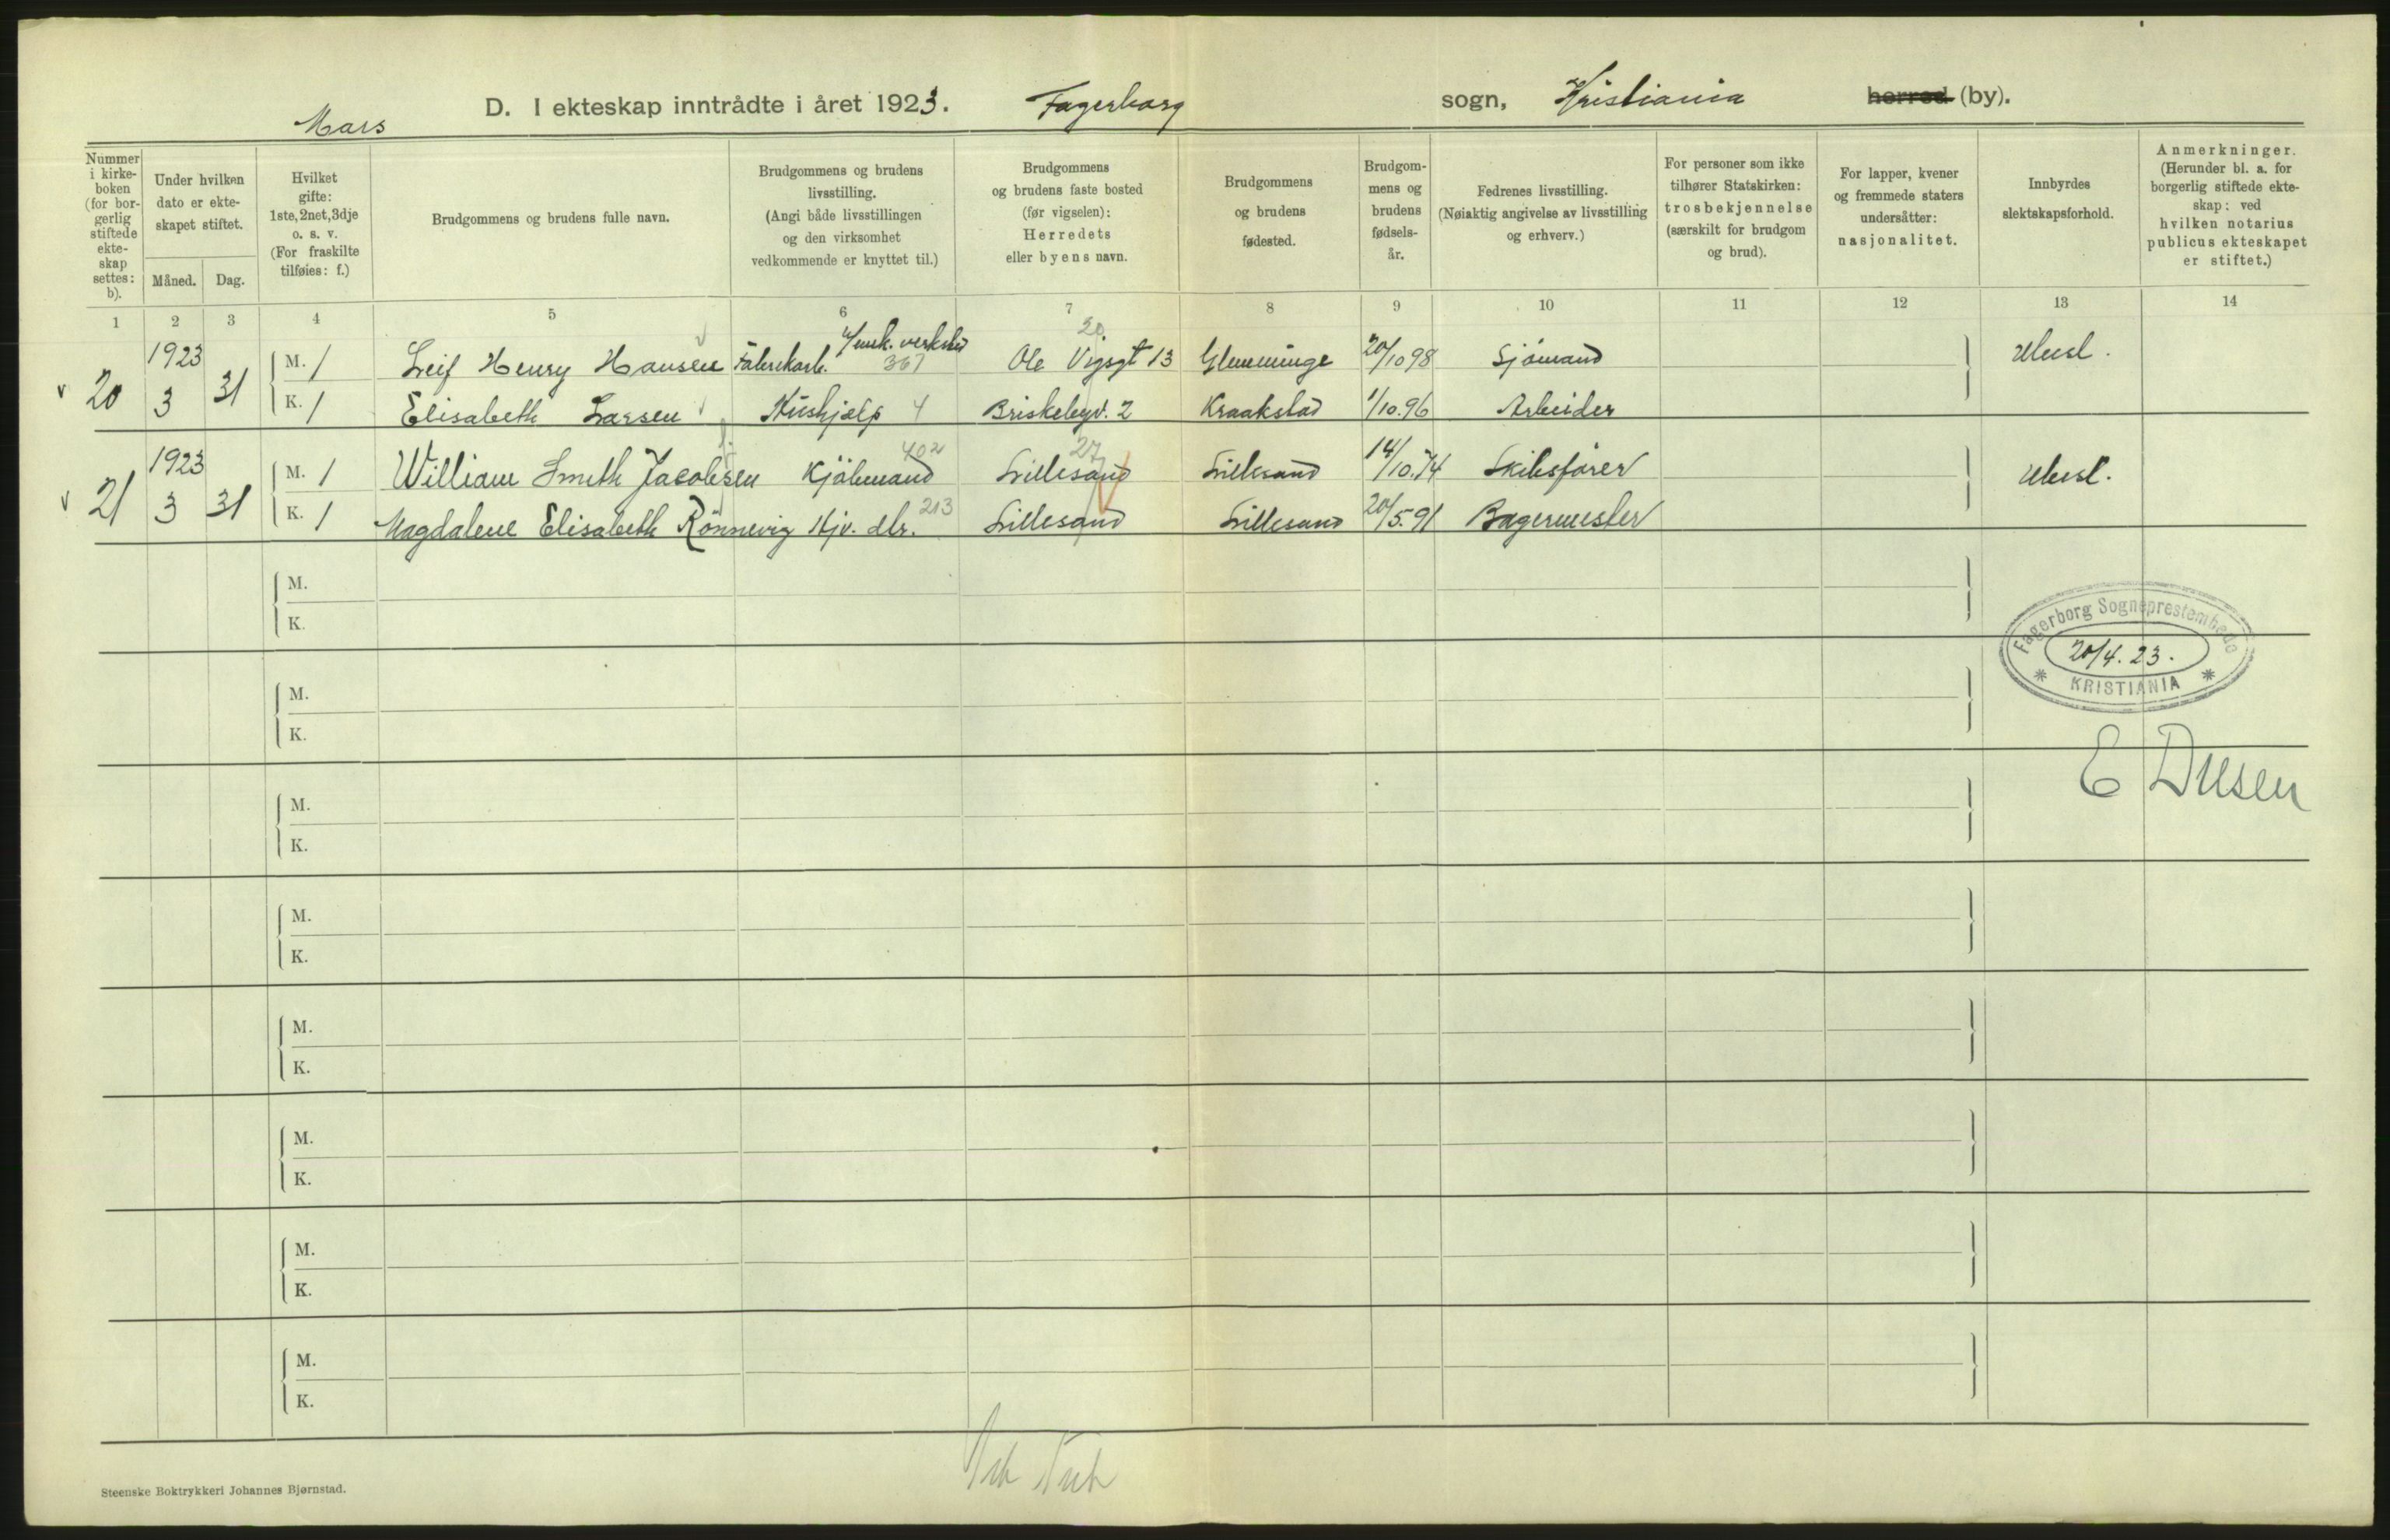 Mars
D. I ekteskap inntrådte i året 1923. Fagerborg sogn, Kristiania herred (by).
Nummer i kirkeboken (for borgerlig stiftede ekteskap settes: b).
Under hvilken dato er ekteskapet stiftet.
Måned. Dag.
Hvilket gifte: 1ste, 2net, 3dje o. s. v. (For fraskilte tilføies: f.)
Brudgommens og brudens fulle navn.
Brudgommens og brudens livsstilling. (Angi både livsstillingen og den virksomhet vedkommende er knyttet til.)
Brudgommens og brudens faste bosted (før vigselen): Herredets eller byens navn.
Brudgommens og brudens fødested.
Brudgommens og brudens fødselsår.
Fedrenes livsstilling. (Nøiaktig angivelse av livsstilling og erhverv.)
For personer som ikke tilhører Statskirken: trosbekjennelse (særskilt for brudgom og brud).
For lapper, kvener og fremmede staters undersåtter: nasjonalitet.
Innbyrdes slektskapsforhold.
Anmerkninger. (Herunder bl. a. for borgerlig stiftede ekteskap: ved hvilken notarius publicus ekteskapet er stiftet.)
1 2 3 4 5 6 7 8 9 10 11 12 13 14
v 20 1923 3 31 M. 1 Leif Henry Hansen Fabrikarb. v/mek. verksted 367 Ole Vigsgt 13 20 Glemminge 20/10 98 Sjömand Ubesl.
K. 1 Elisabeth Larsen Hushjælp 4 Briskebyv. 2 Kraakstad 1/10.96 Arbeider
v 21 1923 3 31 M. 1 William Smith Jacobsen Kjöbmand 402 Lillesand 27 Lillesand 14/10.74 Skibsfører Ubesl.
K. 1 Magdalene Elisabeth Rönnevig Hjv. dtr. 213 Lillesand Lillesand 20/5.91 Bagermester
M.
K.
Fagerborg Sogneprestembede
20/4.23.
* KRISTIANIA *
M.
K.
E
M.
K.
M.
K.
M.
K.
M.
K.
M.
K.
M.
K.
Steenske Boktrykkeri Johannes Bjørnstad.